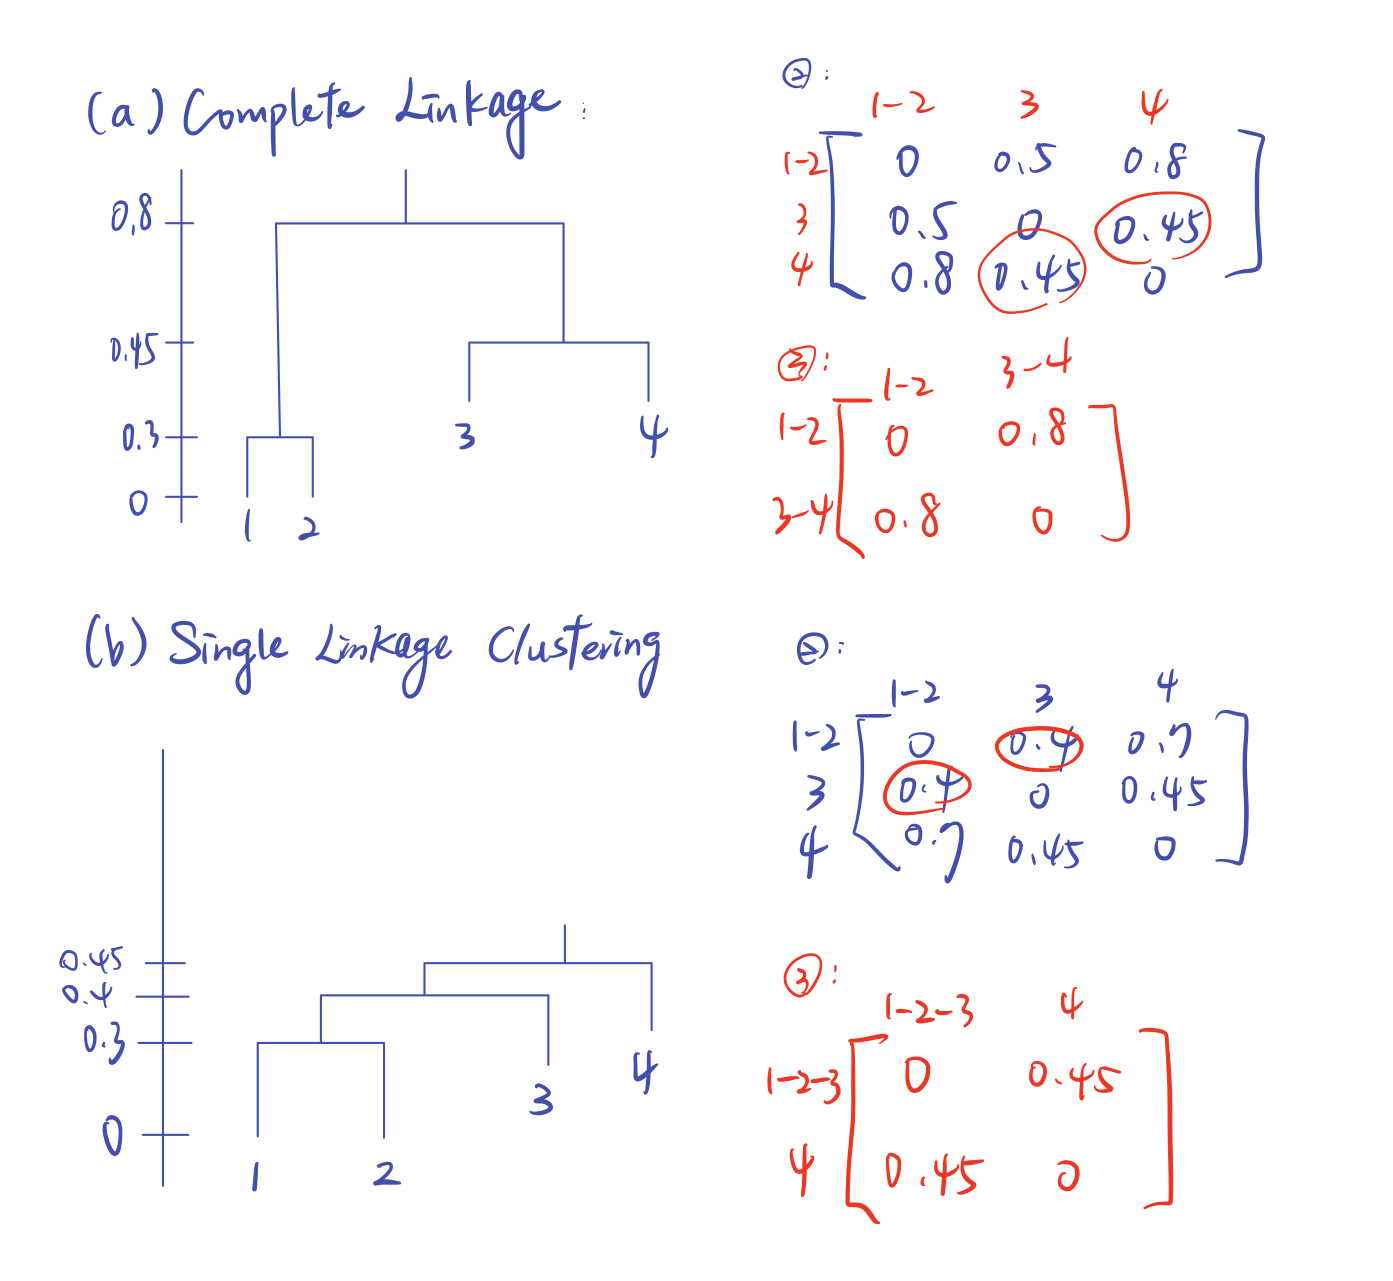 (a) Complete Linkage :
0.8
0.45
0.3
0
1 2
3 4
② :
1-2 3 4
1-2 0 0.5 0.8
3 0.5 0 0.45
4 0.8 0.45 0
③ :
1-2 3-4
1-2 0 0.8
3-4 0.8 0
(b) Single Linkage Clustering
0.45
0.4
0.3
0
1 2
3
4
② :
1-2 3 4
1-2 0 0.4 0.7
3 0.4 0 0.45
4 0.7 0.45 0
③ :
1-2-3 4
1-2-3 0 0.45
4 0.45 0